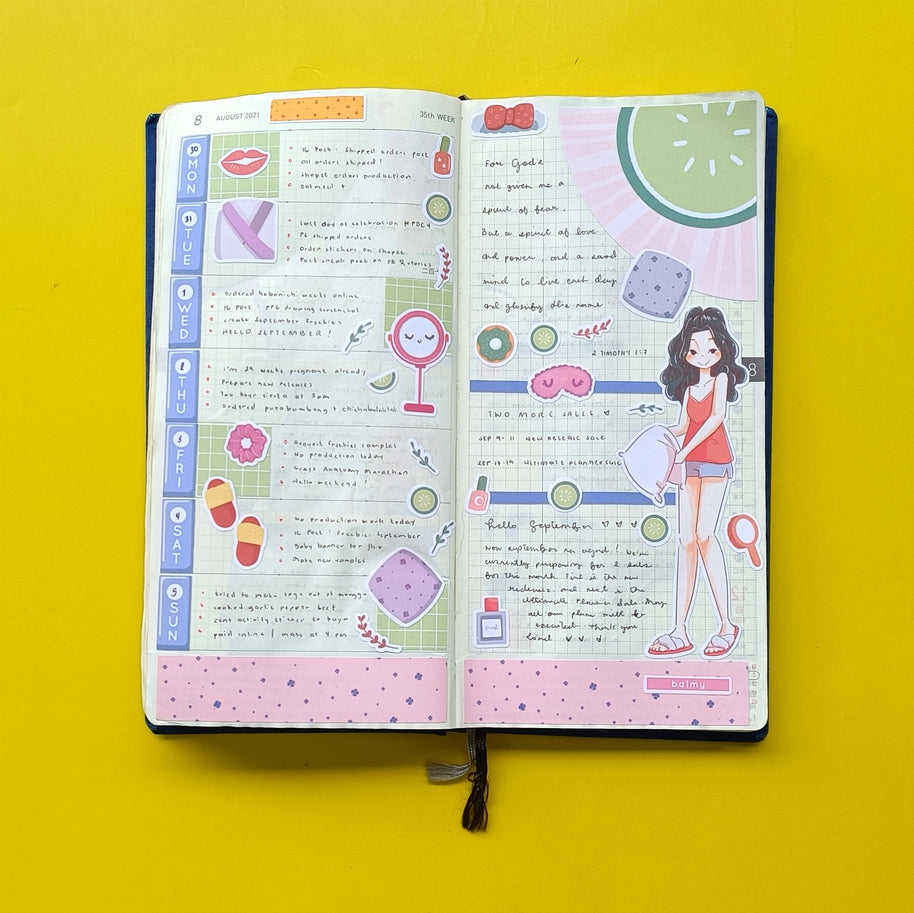 8 AUGUST 2021
35th WEEK
30 MON
IG Post: Shipped orders post
All orders shipped!
Shopee orders production
Oatmeal +
31 TUE
Last day of celebration
PG shipped orders
Order stickers on Shopee
Post sneak peek on FB & stories
二百
1 WED
Ordered hobonichi weeks online
IG Post: PPG drawing screenshot
Create September freebies
HELLO SEPTEMBER!
2 THU
I'm 29 weeks pregnant already
Prepare new releases
at 3pm
Ordered putobumbong + chichabulaklak
3 FRI
Request freebies samples
No production today
Greys Anatomy Marathon
Hello weekend!
4 SAT
No production work today
IG Post: Freebies September
Baby banner for
Make new samples
5 SUN
tried to make eggs out of
cooked garlic pepper beef
sent activity sticker to buyer
paid online / mass at 4 pm
For God's
not given me a
spirit of fear.
But a spirit of love
and power, and a sound
mind to live each day
and glorify the name
2 TIMOTHY 1:7
8
TWO MORE SALES.
SEP 9-11 NEW RELEASE SALE
SEP 17-19 ULTIMATE PLANNER SALE
hello September
now september has arrived! We're
currently preparing for 2 sales
for this month. First is the new
releases and next is the
Ultimate Planner Sale. May
all our plans will be
executed. Thank you
Lord
balmy